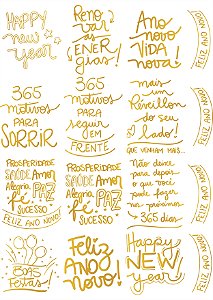 HAPPY
new
year
Reno
var
as
ENER
gias!
Ano
novo
VIDA
nova!
FELIZ ANO NOVO!
365
motivos
PARA
SORRIR
365
motivos
PARA
seguir
EM
FRENTE
mais
um
Réveillon
do seu
lado!
QUE VENHAM MAIS...
FELIZ ANO NOVO!
PROSPERIDADE
SAÚDE Amor
Alegria PAZ
fé
SUCESSO
FELIZ ANO NOVO!
PROSPERIDADE
SAÚDE Amor
Alegria PAZ
fé
SUCESSO
Não deixe
para depois
o que você
pode fazer
nos próximos
365 dias
FELIZ ANO NOVO!
BOAS
Festas
Feliz
ANO
NOVO!
Happy
NEW
year
FELIZ ANO NOVO!